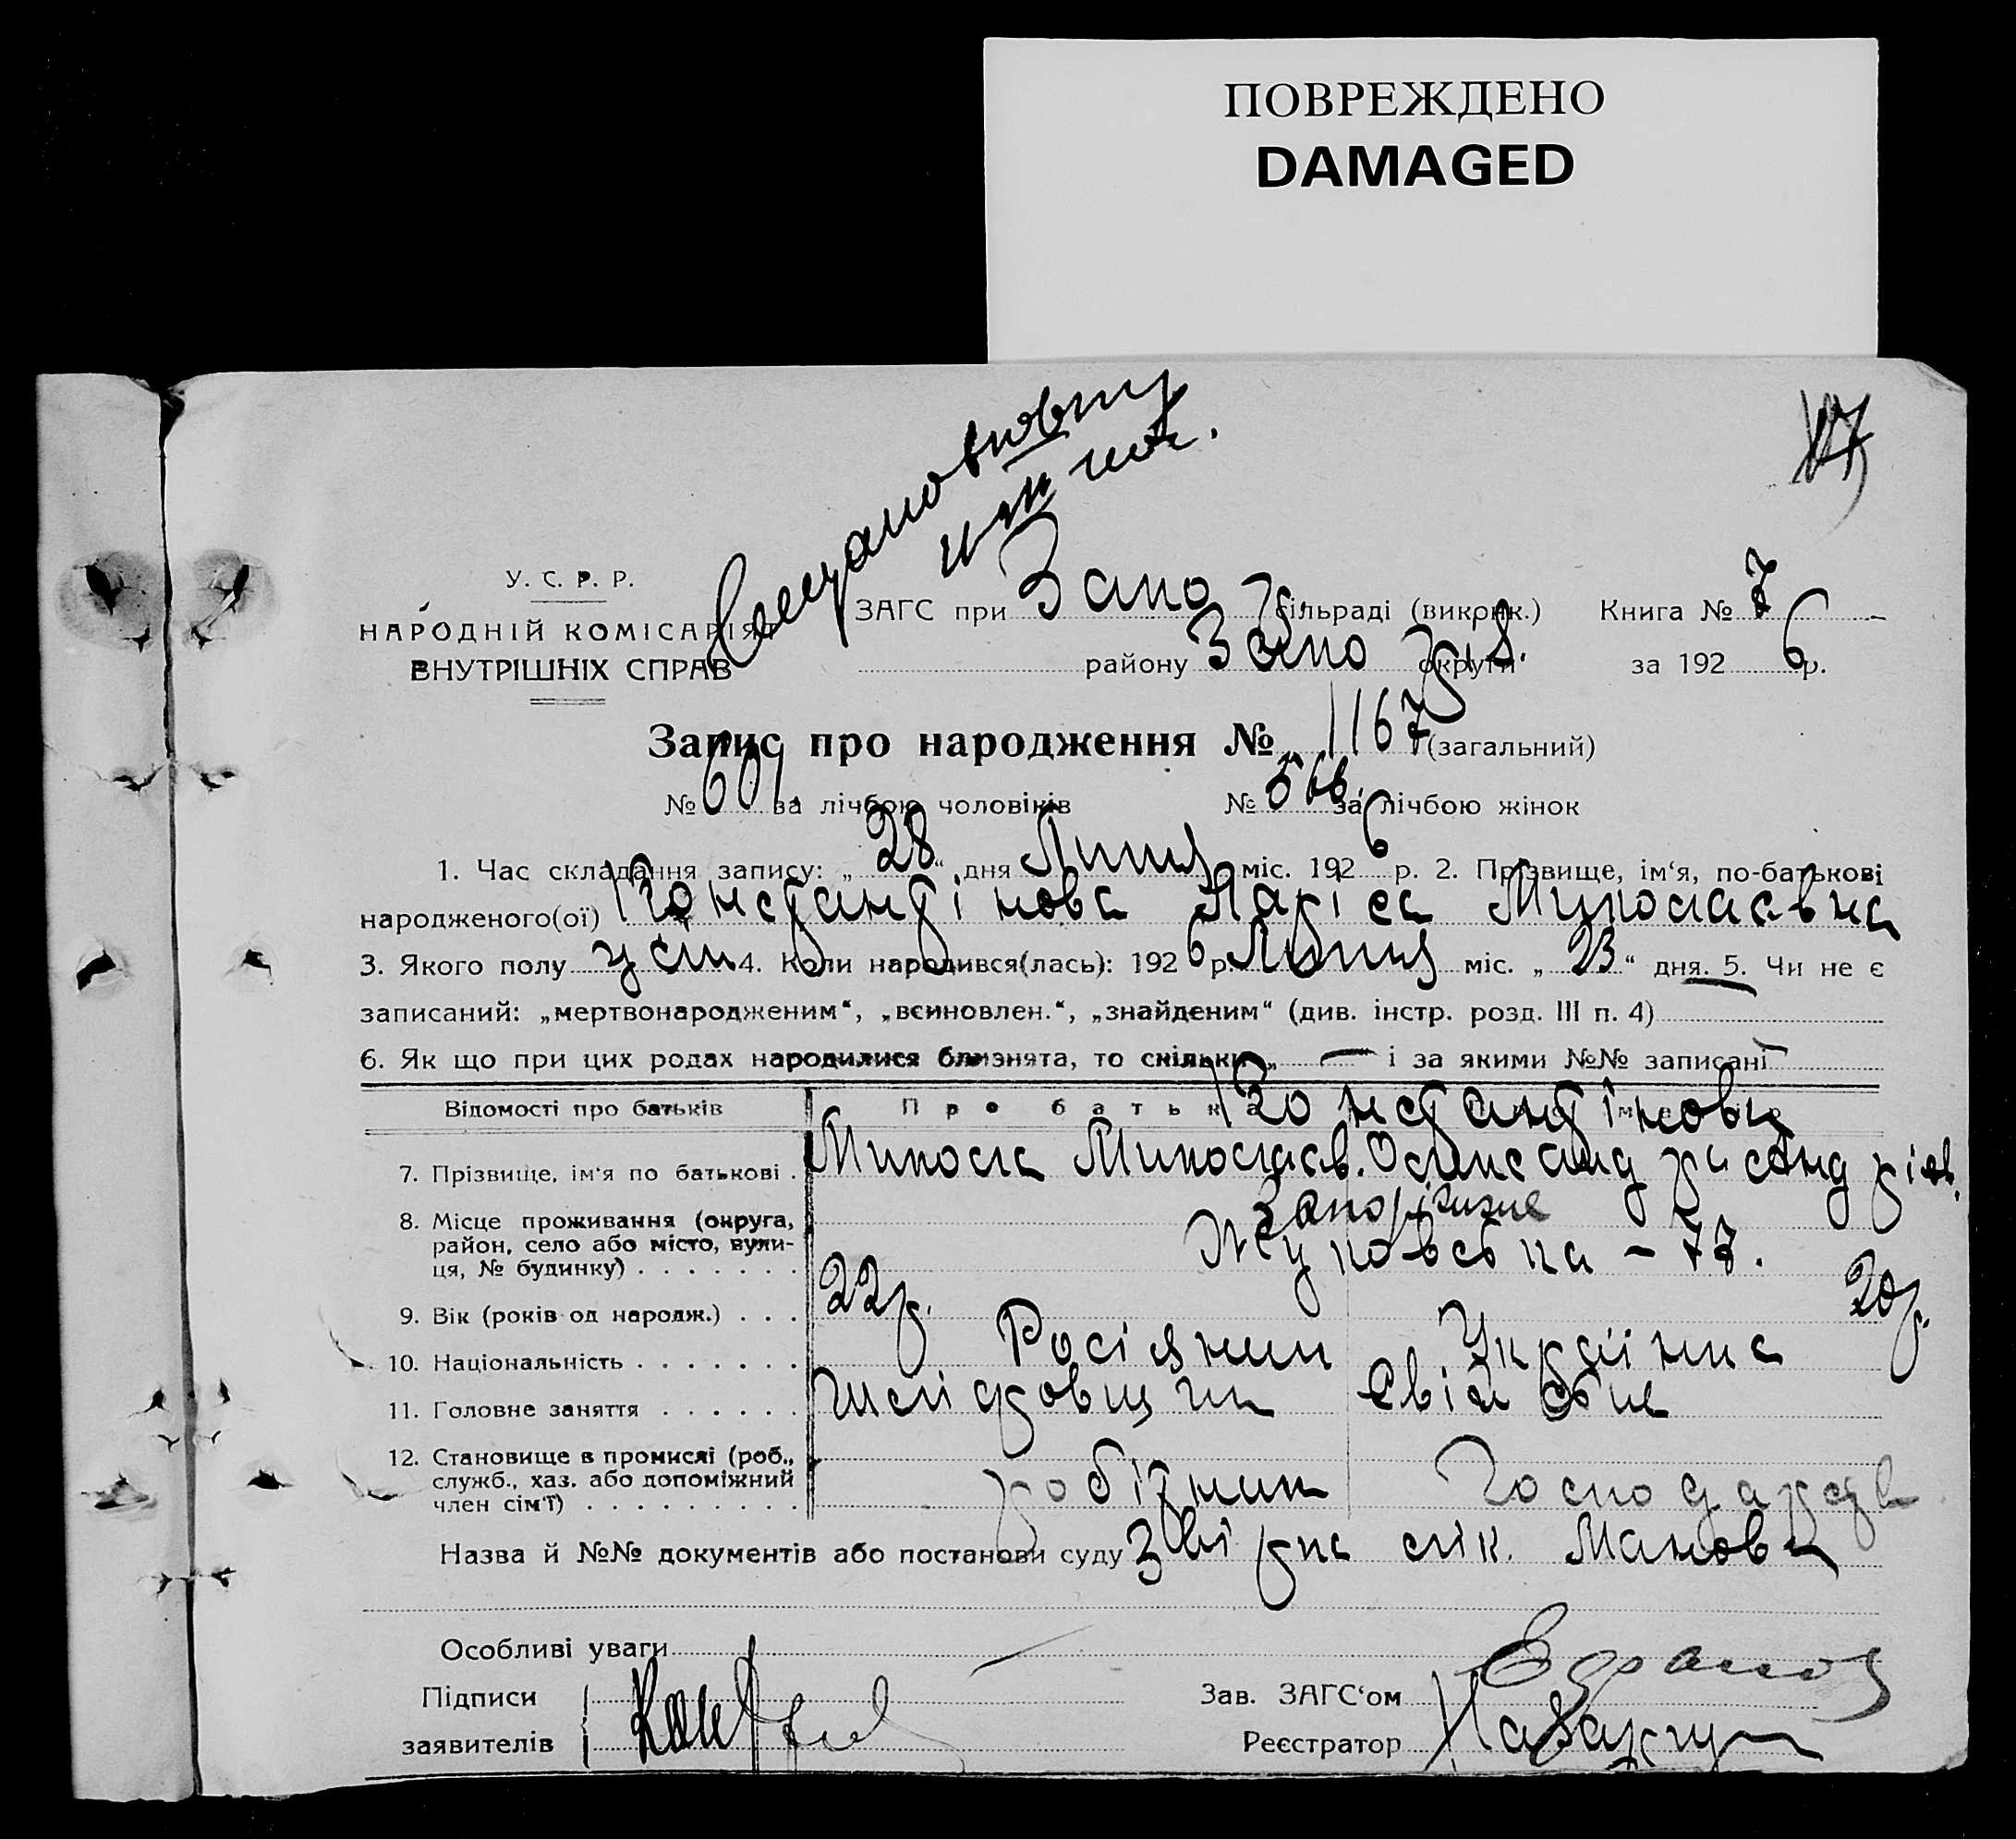 ПОВРЕЖДЕНО
DAMAGED
У. С. Р. Р.
НАРОДНІЙ КОМІСАРІЯТ
ВНУТРІШНІХ СПРАВ
ЗАГС при Запо сільраді (виконк.) Книга № 7
району Запо округи за 1926 р.
Запис про народження № 1167 (загальний)
№ 601 за лічбою чоловіків № 566 за лічбою жінок
1. Час складання запису: „28“ дня Липня міс. 1926 р. 2. Прізвище, ім‘я, по-батькові
народженого(ої) Константінова Ларіса Миколаєвна
3. Якого полу жін 4. Коли народився(лась): 1926 р. Липня міс. „23“ дня. 5. Чи не є
записаний: „мертвонародженим“, „всиновлен.“, „знайденим“ (див. інстр. розд. III п. 4)
6. Як що при цих родах народилися близнята, то скільки „ — “ і за якими №№ записані —
Відомості про батьків Про батька Константінови
7. Прізвище, ім‘я по батькові . Микола Миколаєв. Олександра
8. Місце проживання (округа, Запоріжжя
район, село або місто, вули- Жуковська – 77.
ця, № будинку) . . . . . . .
9. Вік (років од народж.) . . . 22 р. 20 р.
10. Національність . . . . . . . Росіянин Українка
11. Головне заняття . . . . . .
12. Становище в промислі (роб.,
служб., хаз. або допоміжний робітник Господарка
член сім‘ї) . . . . . . . . .
Назва й №№ документів або постанови суду лік.
Особливі уваги
Підписи
заявителів
Зав. ЗАГС‘ом
Реєстратор